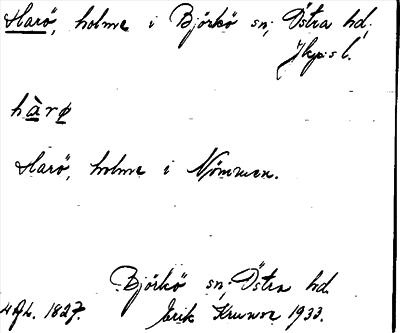 Harö, holme i Björkö sn, Östra hd,
Jkps l.
hàrø
Harö, holme i Nömmen.
Björkö sn, Östra hd.
1827. Erik Kramm 1933.